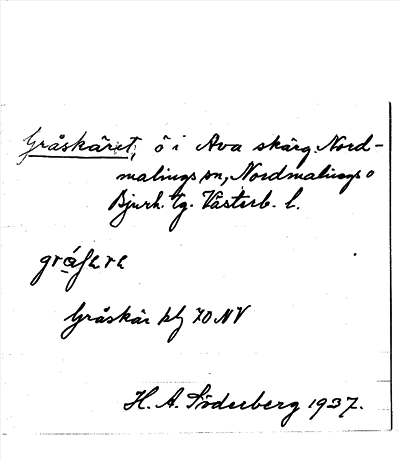 Gråskäret, ö i Ava skärg. Nord-
malings sn, Nordmalings o
Bjurh. tg. Västerb. l.
Gråskär kbl 70 NV
H. A. Söderberg 1937.